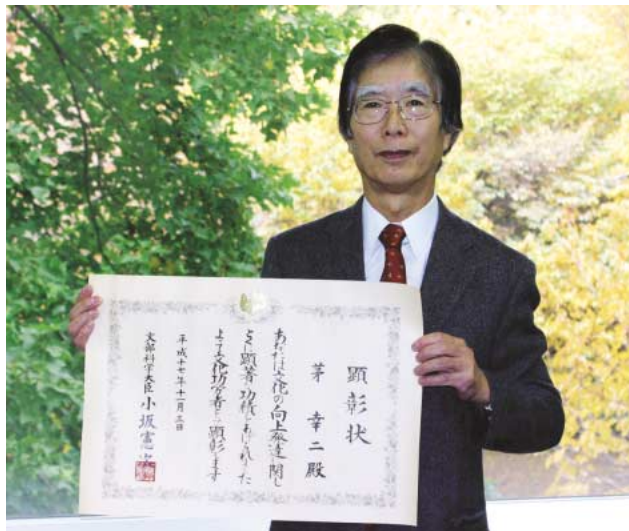 顕彰状
茅 幸二殿
あなたは文化の向上発達に関し
とくに顕著な功績をあげられました
よって文化功労者として顕彰します
平成十七年十一月三日
文部科学大臣 小坂憲次